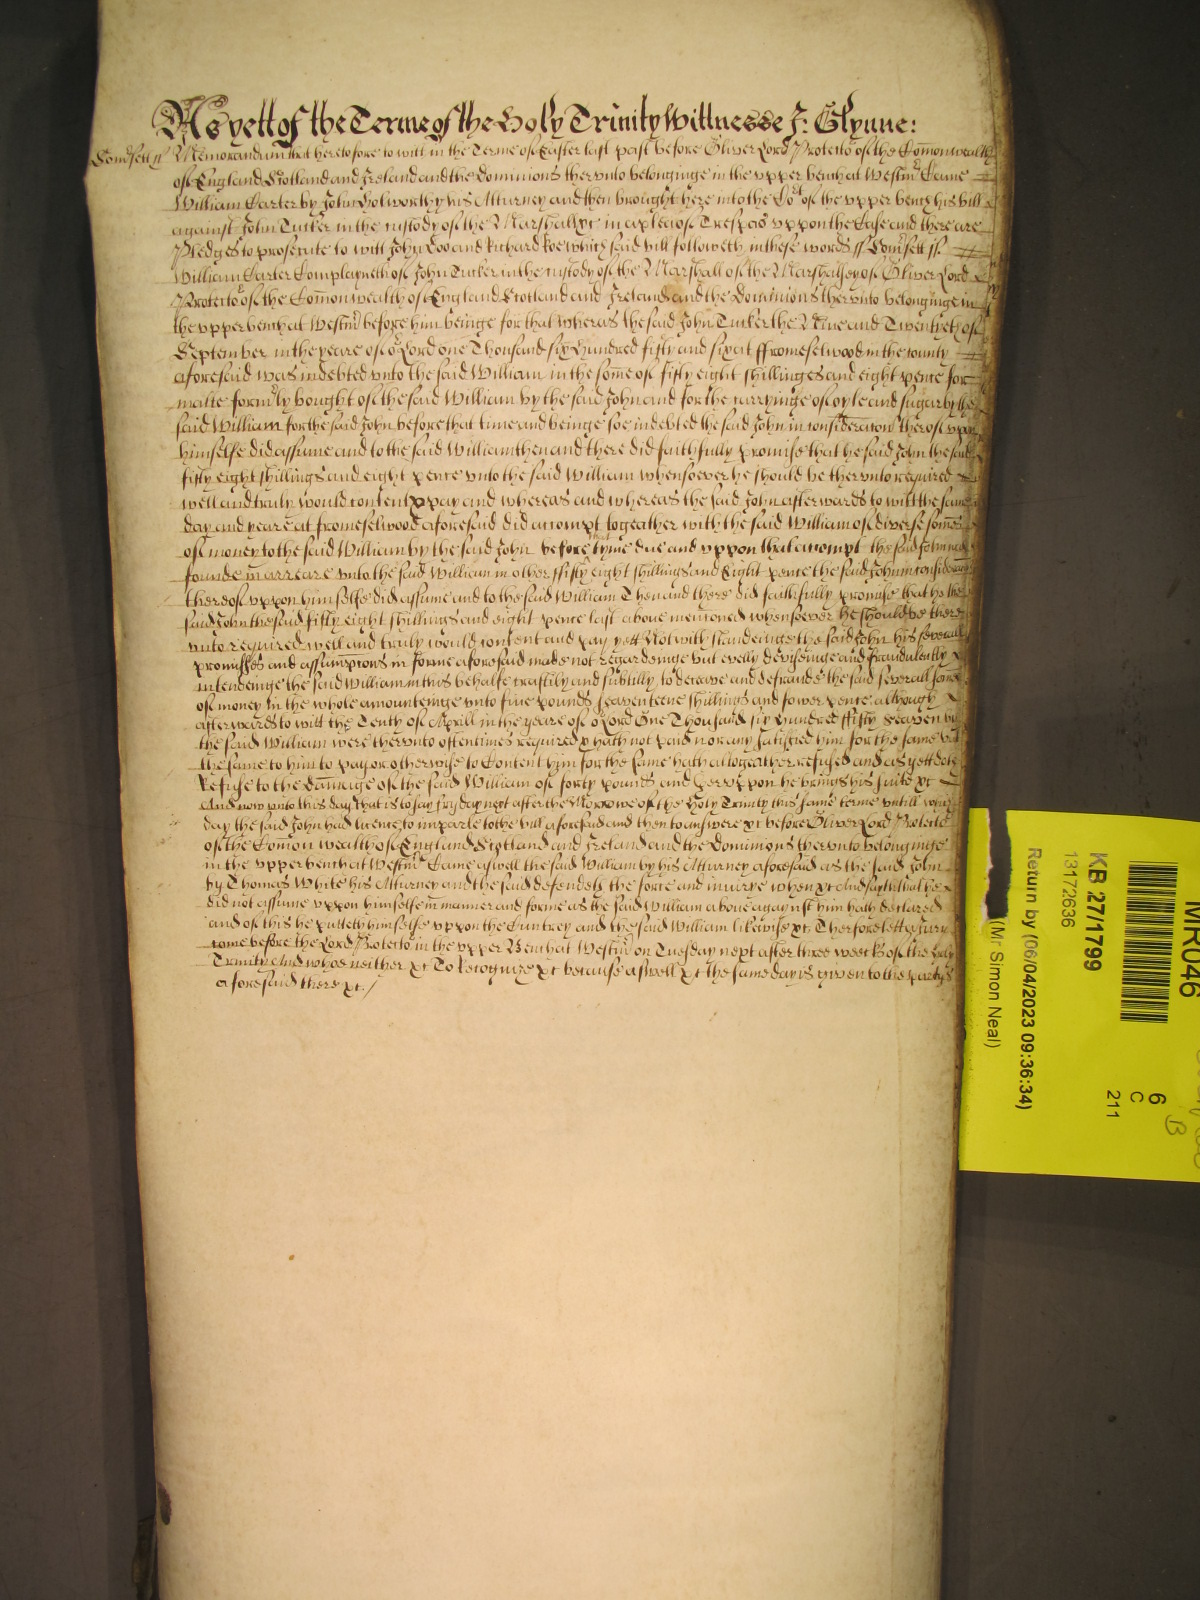 As yett of the Terme of the Holy Trinity Wittnesse J: Glynne:
Somsett ss Memorandum that heretofore to witt in the Terme of Easter last past before Oliver Lord Protecto of the Comonwealth
of England Scotland and Ireland and the Dominions therunto belonginge in the upper bench at Westmr Came
William Carter by John Holworthy his Atturney and then brought here into the Cort of the upper bench his bill
against John Tucker in the custody of the Marshall &c in a plea of Trespas uppon the Case and there are
Pledges to prosecute to witt John Doo and Richard Roe which said bill followeth in these words ss Somsett ss.
William Carter Complayneth of John Tucker in the custody of the Marshall of the Marshalsey of Oliver Lord
Protector of the Comonwealth of England Scotland and Ireland and the Dominions therunto belonginge in
the upper bench at Westmr before him beinge for that wheras the said John Tucker the Nine and Twentyth of
September in the yeare of or Lord one Thousand six Hundred fifty and six at ffromeselwood in the county
aforesaid was indebted unto the said William in the some of fifty eight shillinges and eight pence for
malte formrly bought of the said William by the said John and for the carryinge of oyle and sugar by the
said William for the said John before that time and beinge soe indebted the said John in consideracon therof uppon
himselfe did assume and to the said William then and there did faithfully promise that he the said John the said
fifty eight shillings and eight pence unto the said William whensoever he should be therunto required
well and truly would content & pay and whereas and whereas the said John afterwards to witt the same
day and yeare at fromeselwood aforesaid did accompt togeather with the said William of diverse somes
of money to the said William by the said John before that tyme due and uppon that accompt the said John was
founde in arreare unto the said William in other fifty eight shillings and Eight pence the said John in consideracon
thereof uppon himselfe did assume and to the said William Then and there did faithfully promise that he the
said John the said fifty eight shillings and eight pence last above mentioned whensoever he should be there
unto required well and truly would content and pay yett Notwithstandeinge the said John his severall
promisses and assumpcions in forme aforesaid made not regardeinge but evelly deviseinge and fraudulently
intendeinge the said William in this behalfe craftily and subtilly to deceave and defraude the said severall somes
of money In the whole amounteinge unto five pounds seaventeene shillings and fower pence although
afterwards to witt the Tenty of Aprill in the yeare of or Lord One Thousand six hundred ffifty seaven by
the said William were therunto oftentimes required & hath not paid nor any satisfied him for the same but
the same to him to pay or otherwise to Content him for the same hath altogeather refused and as yett doth
Refuse to the Damage of the said William of forty pounds and Heruppon he brings his suite &c
And now unto this day that is to say fryday next after the Morrowe of the Holy Trinity this same terme untill which
day the said John had licence to imparle to the bill aforesaid and then to answere &c before Oliver Lord Protecto
of the Comon wealth of England Scotland and Ireland and the Dominions therunto belonginge
in the upper bench at Westmr Came aswell the said William by his Atturney aforesaid as the said John
by Thomas White his Atturney and the said defendeth the force and iniurye when &c And sayth that he
did not assume uppon himselfe in manner and forme as the said William above against him hath declared
and of this he putteth himselfe uppon the Cuntrey and the said William likewise &c Therfore lett a Jury
come before the Lord Protecto in the upper Bench at Westmr on Tuesday next after three weeks of the holy
Trinity And whoe neither &c To Recognize &c because aswell &c the same day is given to the partys
aforesaid there &c./
MR046
KB 27/1799
13172636
Return by (06/04/2023 09:36:34)
(Mr Simon Neal)
6
C
211